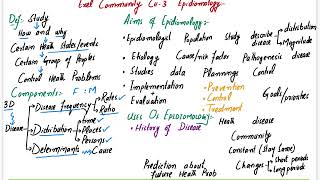 Exel Community Ch-3 Epidemology:-
Def: study
How and why
Certain Heath states/events
Certain Group of Peoples
Control Heath Problems
Components: F : M
3D
Disease
Disease frequency
Rates
Ratio
Distribution
time
Places
Persons
Determinants
Cause
Aims of Epidemology:-
Epidemologist Population study Disease
describe
distribution
Magnitude
Etiology Cause/risk factor Pathogenesis disease
Studies data Plannings Control
Implementation
Evaluation
Prevention
Control
Treatment
Goals/priorities
Uses Of Epidomology:-
History of Disease
Heath disease
Community
Constant (stay same)
Changes
Short periods
long periods
Prediction about
future Heath Prob